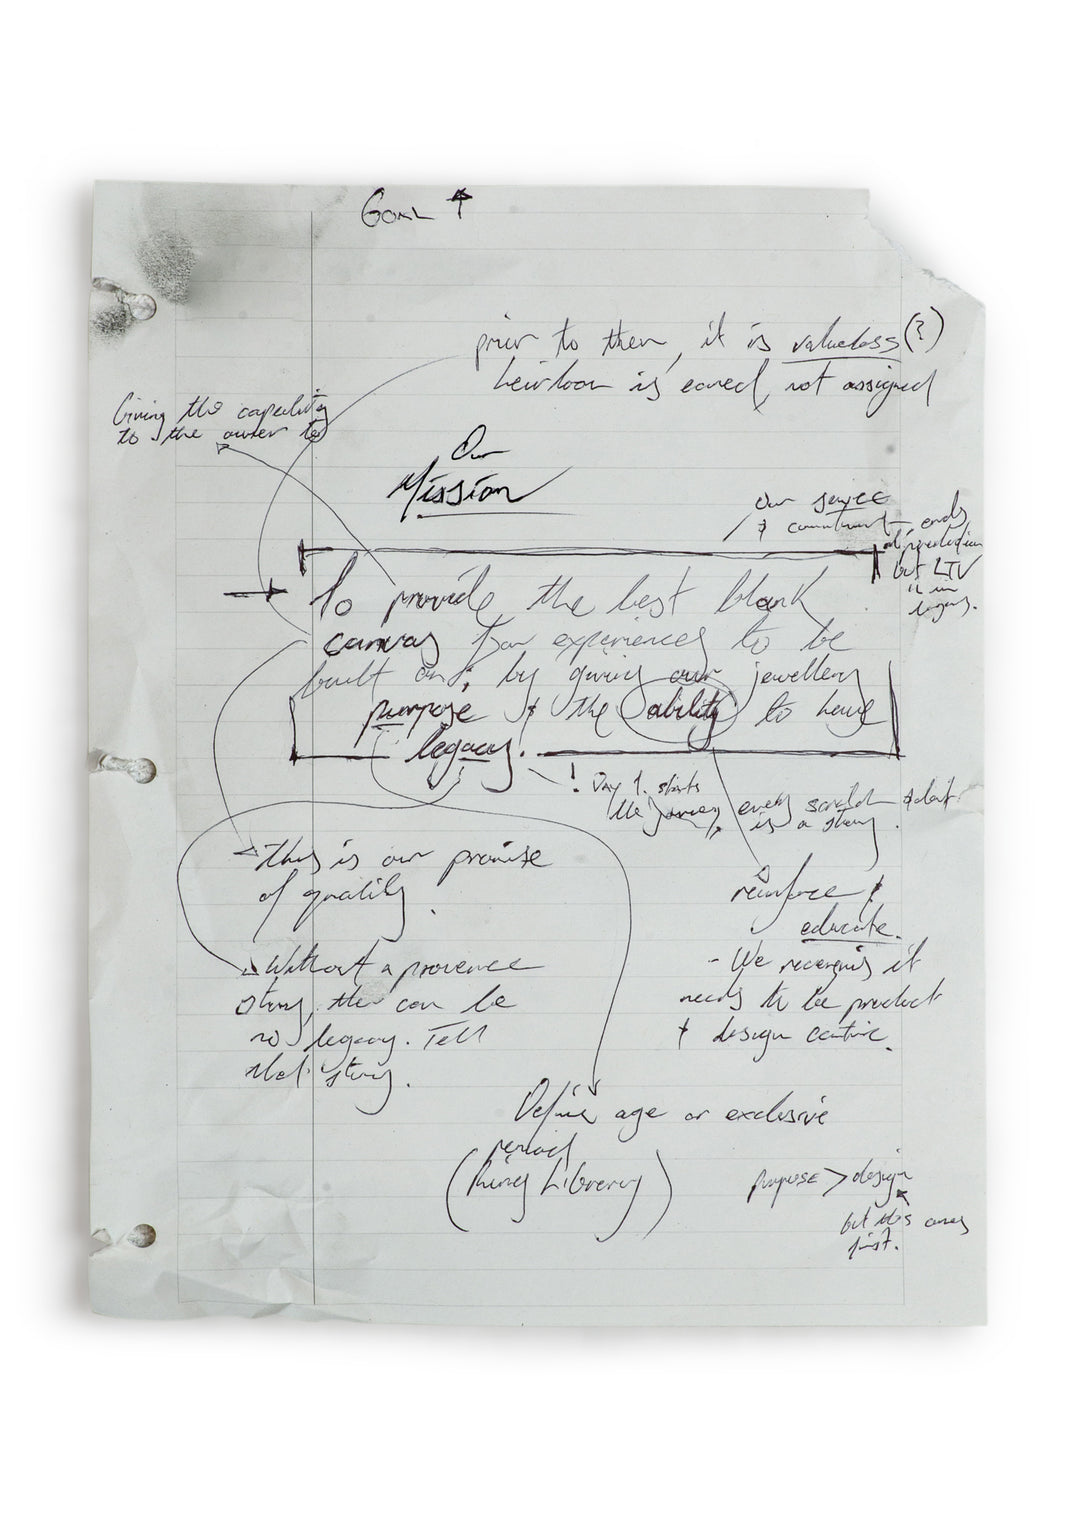 GOAL ↑
prior to then, it is valueless (?)
heirloom is earned, not assigned
Giving the capability
to the owner to
Our
Mission
Our service
& commitment ends
at production
but LTV
is in
legacy.
To provide the best blank
canvas for experiences to be
built on; by giving our jewellery
purpose & the ability to have
legacy.
! Day 1 starts
the journey, every scratch & dent
is a story.
This is our promise
of quality.
reinforce &
educate.
Without a provence
story, ther can be
no legacy. Tell
that story.
- We recognise it
needs to be product
& design centric.
Define age or exclusive
period
(Ring Library)
purpose > design
but this comes
first.